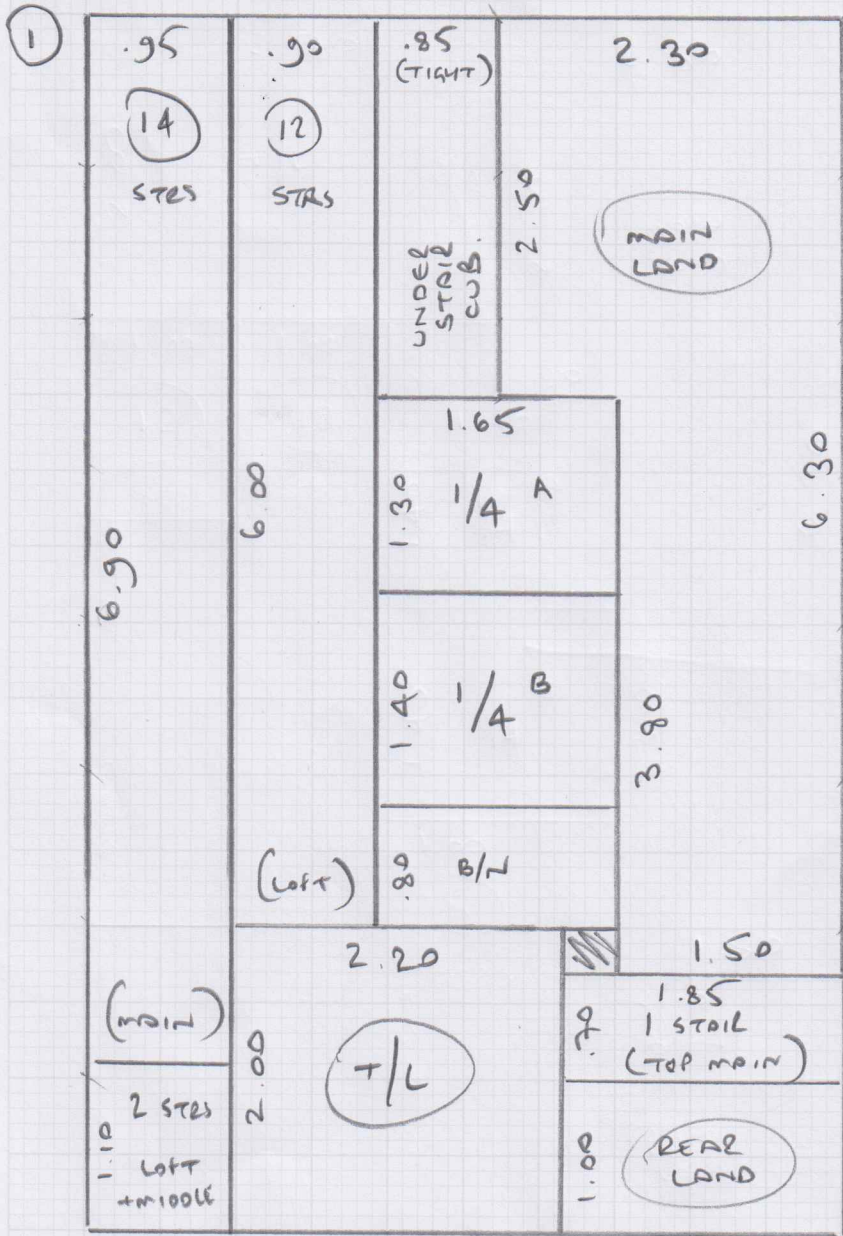 1
.95
14
STRS
6.90
(MAIN)
1.10
2 STRS
LOFT
+MIDDLE
.90
12
STRS
6.00
(LOFT)
.85
(TIGHT)
UNDER
STAIR
CUB.
2.50
2.30
MAIN
LAND
6.30
1.65
1.30
1/4 A
1.40
1/4 B
3.80
.80
B/N
2.20
2.00
T/L
1.50
1.85
.70
1 STAIR
(TOP MAIN)
1.00
REAR
LAND